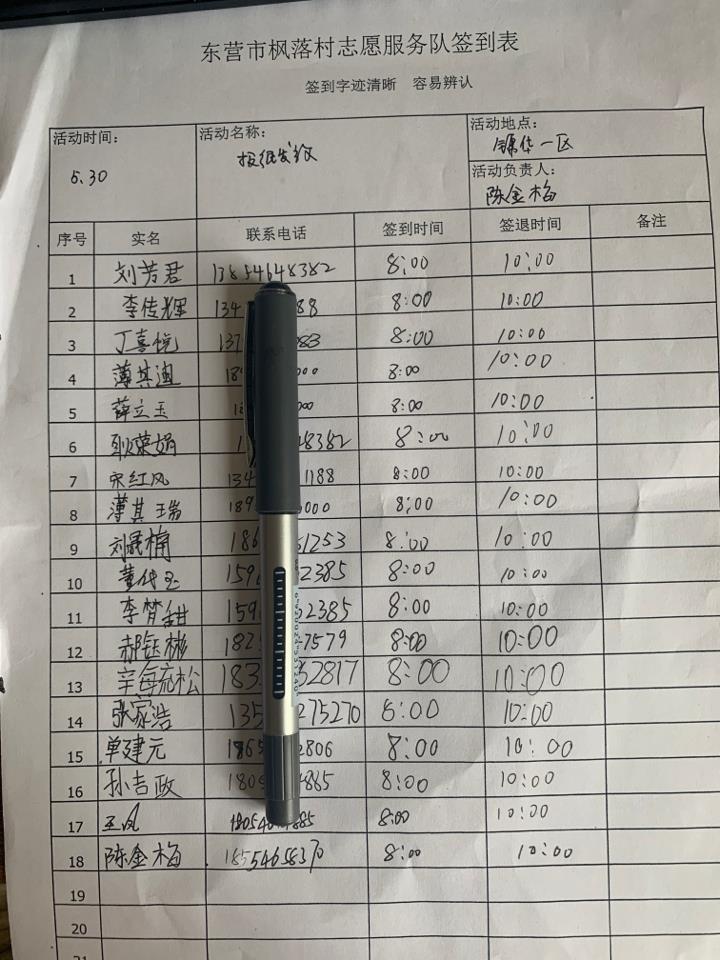 东营市枫落村志愿服务队签到表
签到字迹清晰 容易辨认
活动时间： 活动名称： 活动地点：
5.30 报纸发放 锦华一区
活动负责人：
陈金梅
序号 实名 联系电话 签到时间 签退时间 备注
1 刘芳君 13854648382 8:00 10:00
2 李传辉 134 88 8:00 10:00
3 丁喜悦 137 083 8:00 10:00
4 薄其迪 18 000 8:00 10:00
5 薛立玉 000 8:00 10:00
6 耿荣娟 1 48382 8:00 10:00
7 宋红风 134 1188 8:00 10:00
8 薄其瑞 189 0000 8:00 10:00
9 刘晟楠 186 51253 8:00 10:00
10 159 2385 8:00 10:00
11 李梦甜 159 52385 8:00 10:00
12 郝钰彬 182 7579 8:00 10:00
13 辛 松 183 52817 8:00 10:00
14 张家浩 135 275270 8:00 10:00
15 单建元 1865 2806 8:00 10:00
16 孙吉政 1805 4885 8:00 10:00
17 王凤 18054 885 8:00 10:00
18 陈金梅 18554658370 8:00 10:00
19
20
21